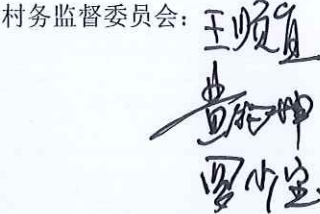 村务监督委员会：王顺宜
黄坤
罗小宝